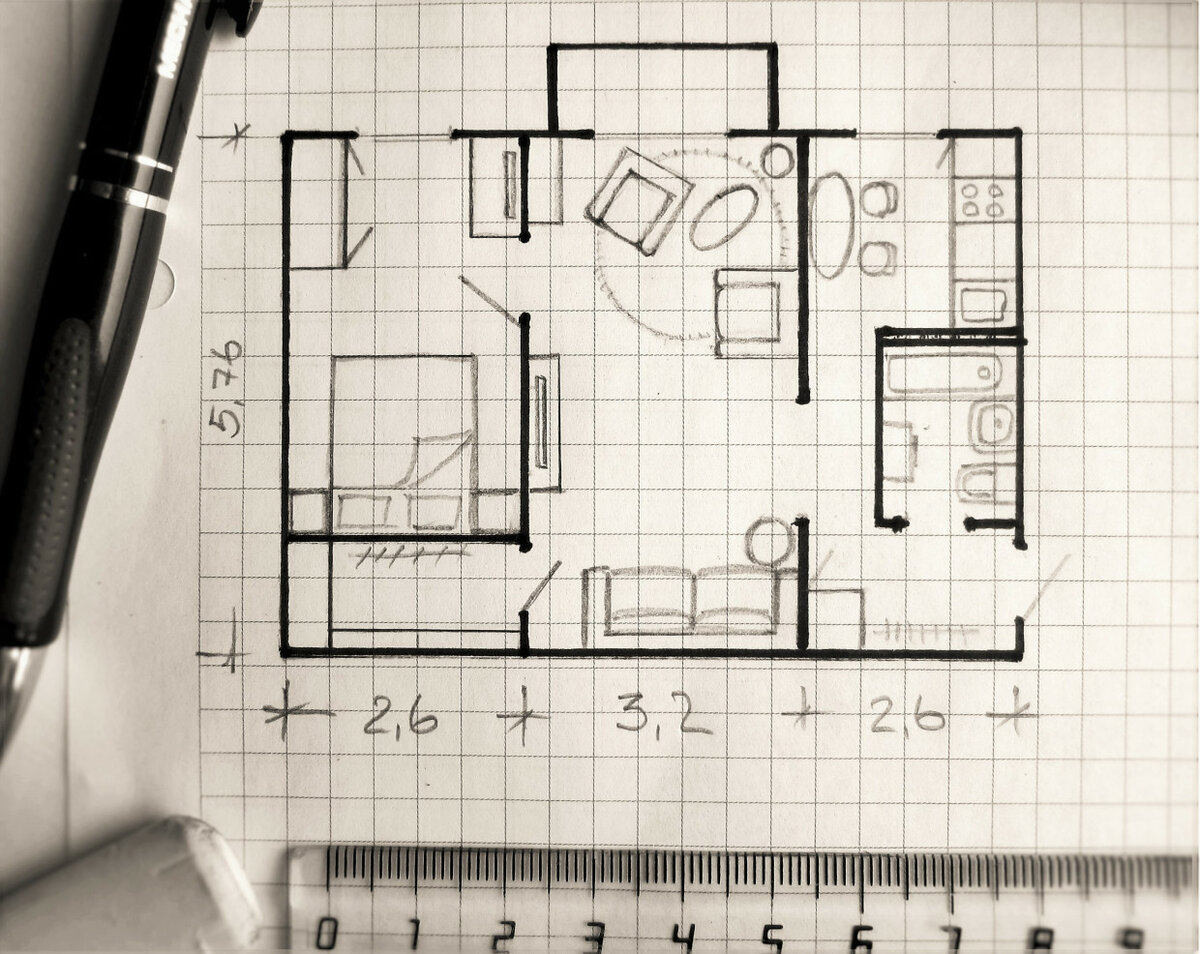 5,76
2,6 3,2 2,6
0 1 2 3 4 5 6 7 8 9